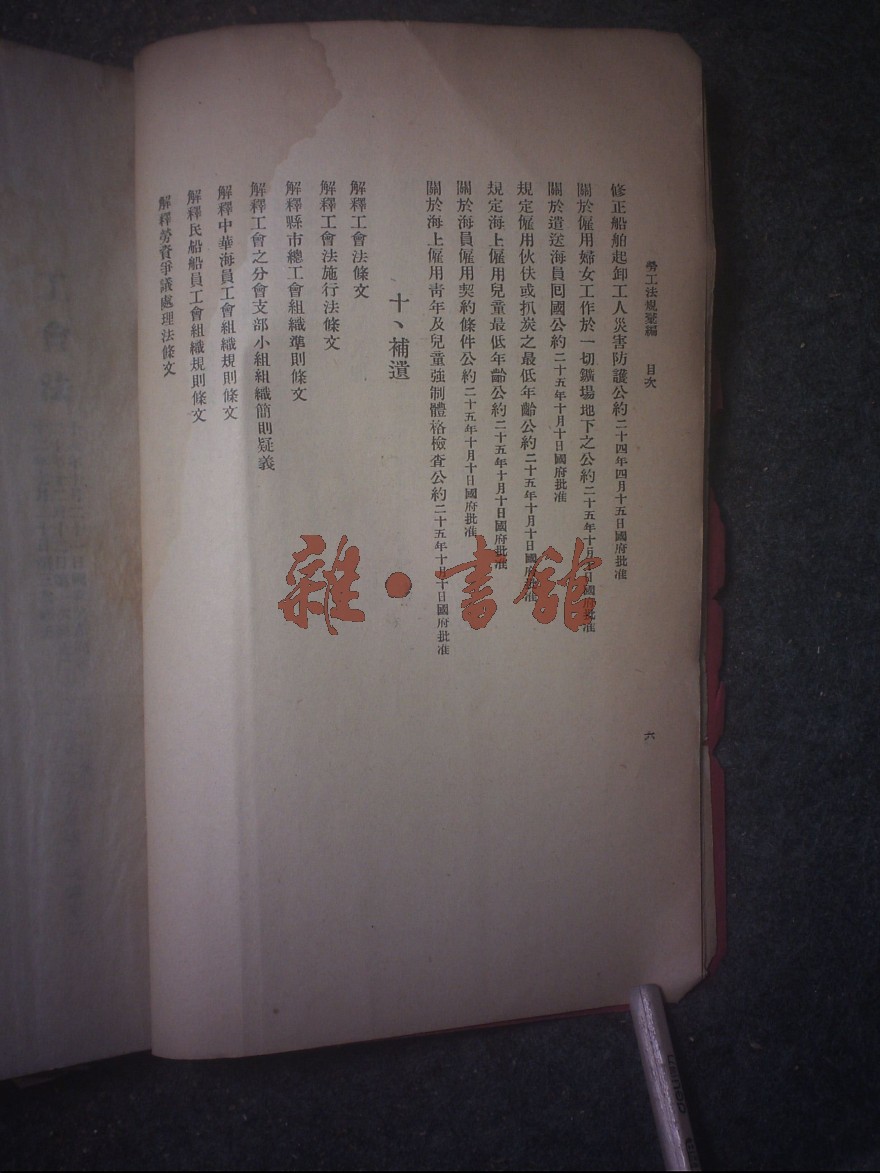 勞工法規彙編　目次
修正船舶起卸工人災害防護公約二十四年四月十五日國府批准
關於僱用婦女工作於一切鑛場地下之公約二十五年十月十日國府批准
關於遣送海員囘國公約二十五年十月十日國府批准
規定僱用伙伕或扒炭之最低年齡公約二十五年十月十日國府批准
規定海上僱用兒童最低年齡公約二十五年十月十日國府批准
關於海員僱用契約條件公約二十五年十月十日國府批准
關於海上僱用青年及兒童強制體格檢查公約二十五年十月十日國府批准
十、補遺
解釋工會法條文
解釋工會法施行法條文
解釋縣市總工會組織準則條文
解釋工會之分會支部小組組織簡則疑義
解釋中華海員工會組織規則條文
解釋民船船員工會組織規則條文
解釋勞資爭議處理法條文
六
雜·書館